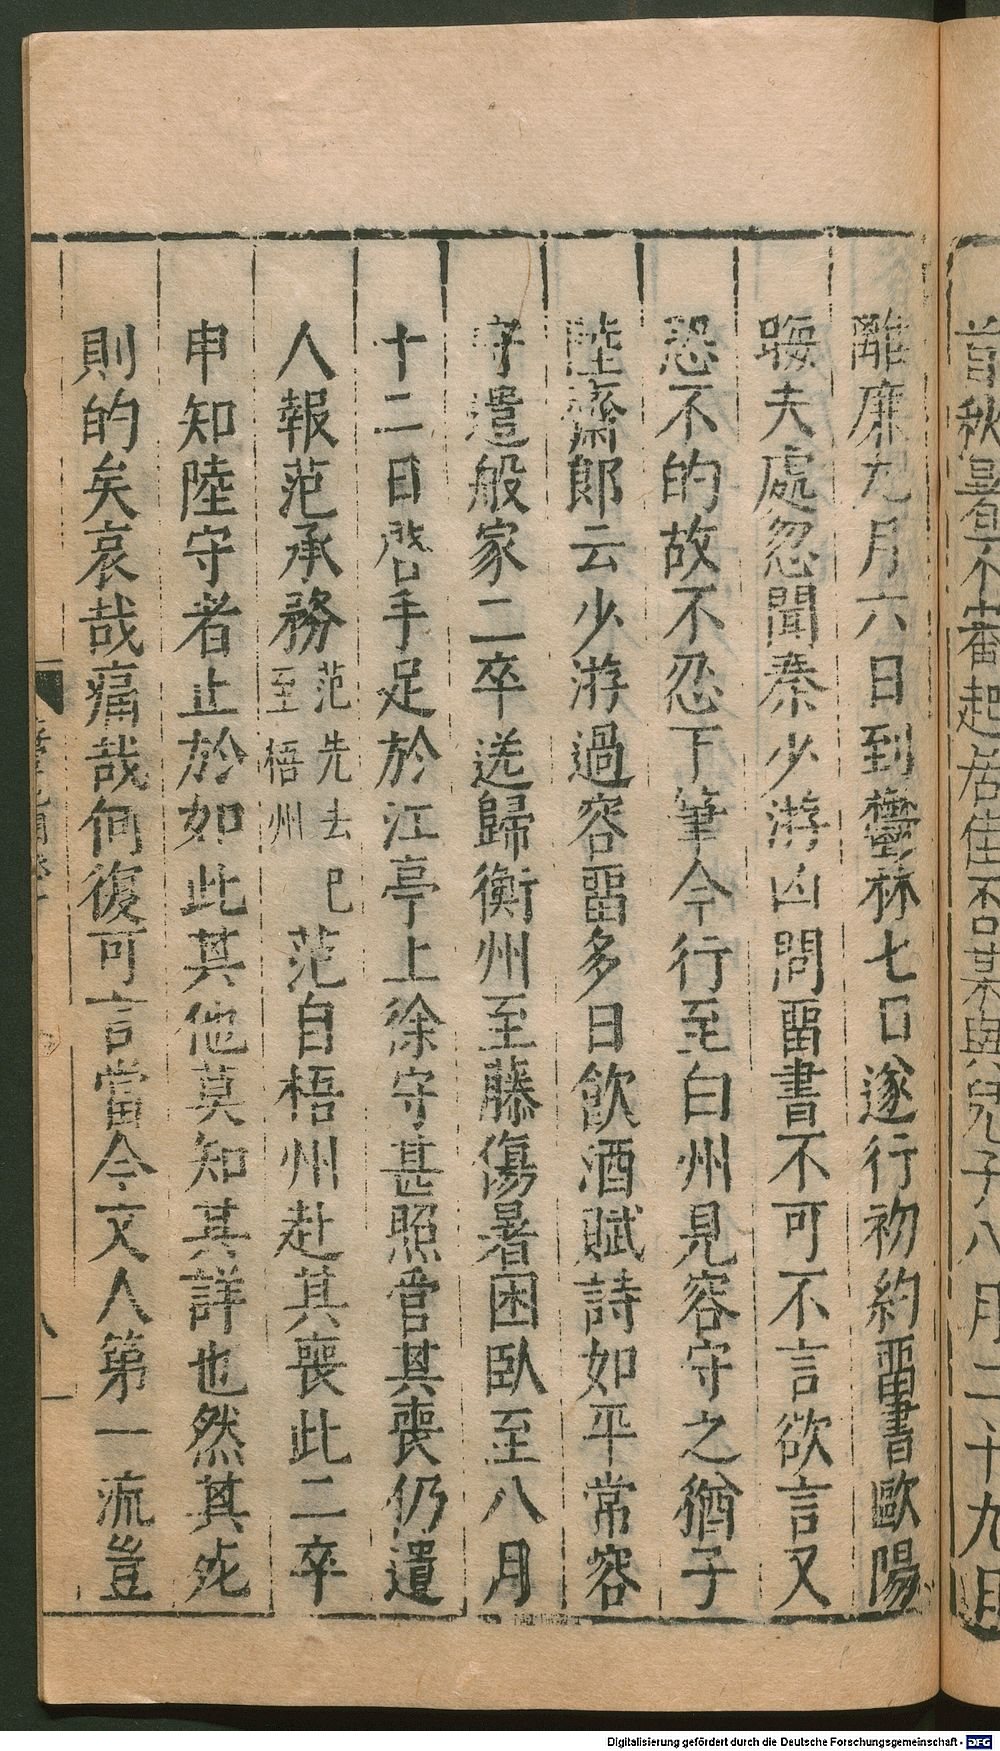 首秋暑不審起居佳否某與兒子八月二十九日
離廉九月六日到鬱林七日遂行初約畱書歐陽
晦夫處忽聞秦少游凶問畱書不可不言欲言又
恐不的故不忍下筆今行至白州見容守之猶子
陸齋郎云少游過容畱多日飲酒賦詩如平常容
守遣般家二卒送歸衡州至藤傷暑困臥至八月
十二日啓手足於江亭上徐守甚照管其喪仍遣
人報范承務范先去已至梧州范自梧州赴其喪此二卒
申知陸守者止於如此其他莫知其詳也然其死
則的矣哀哉痛哉何復可言當今文人第一流豈
八
Digitalisierung gefördert durch die Deutsche Forschungsgemeinschaft - DFG